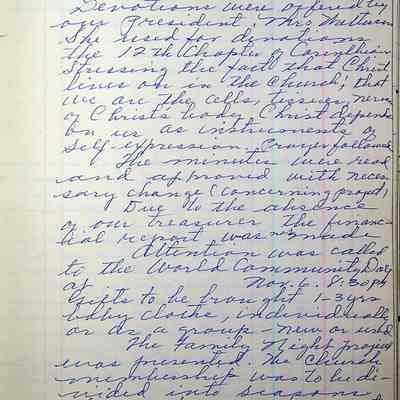 Devotions were offered by
our President Mrs
She used for devotions
the 12th Chapter of Corinthian
stressing the fact that Christ
lives on in the Church; that
we are the cells, tissues, nerves
of Christs body. Christ depends
on us as instruments of
self-expression. Prayer followed.
The minutes were read
and approved with neces-
sary change (concerning project)
Due to the absence
of our treasurer the financ-
ial report was not made
Attention was called
to the World Community Day
at Nov. 6. 8:30 pm
Gifts to be brought 1-3 yrs
baby clothes, individually
or as a group - new or used
The Family Night project
was presented. The Church
membership was to be di-
vided into seasons